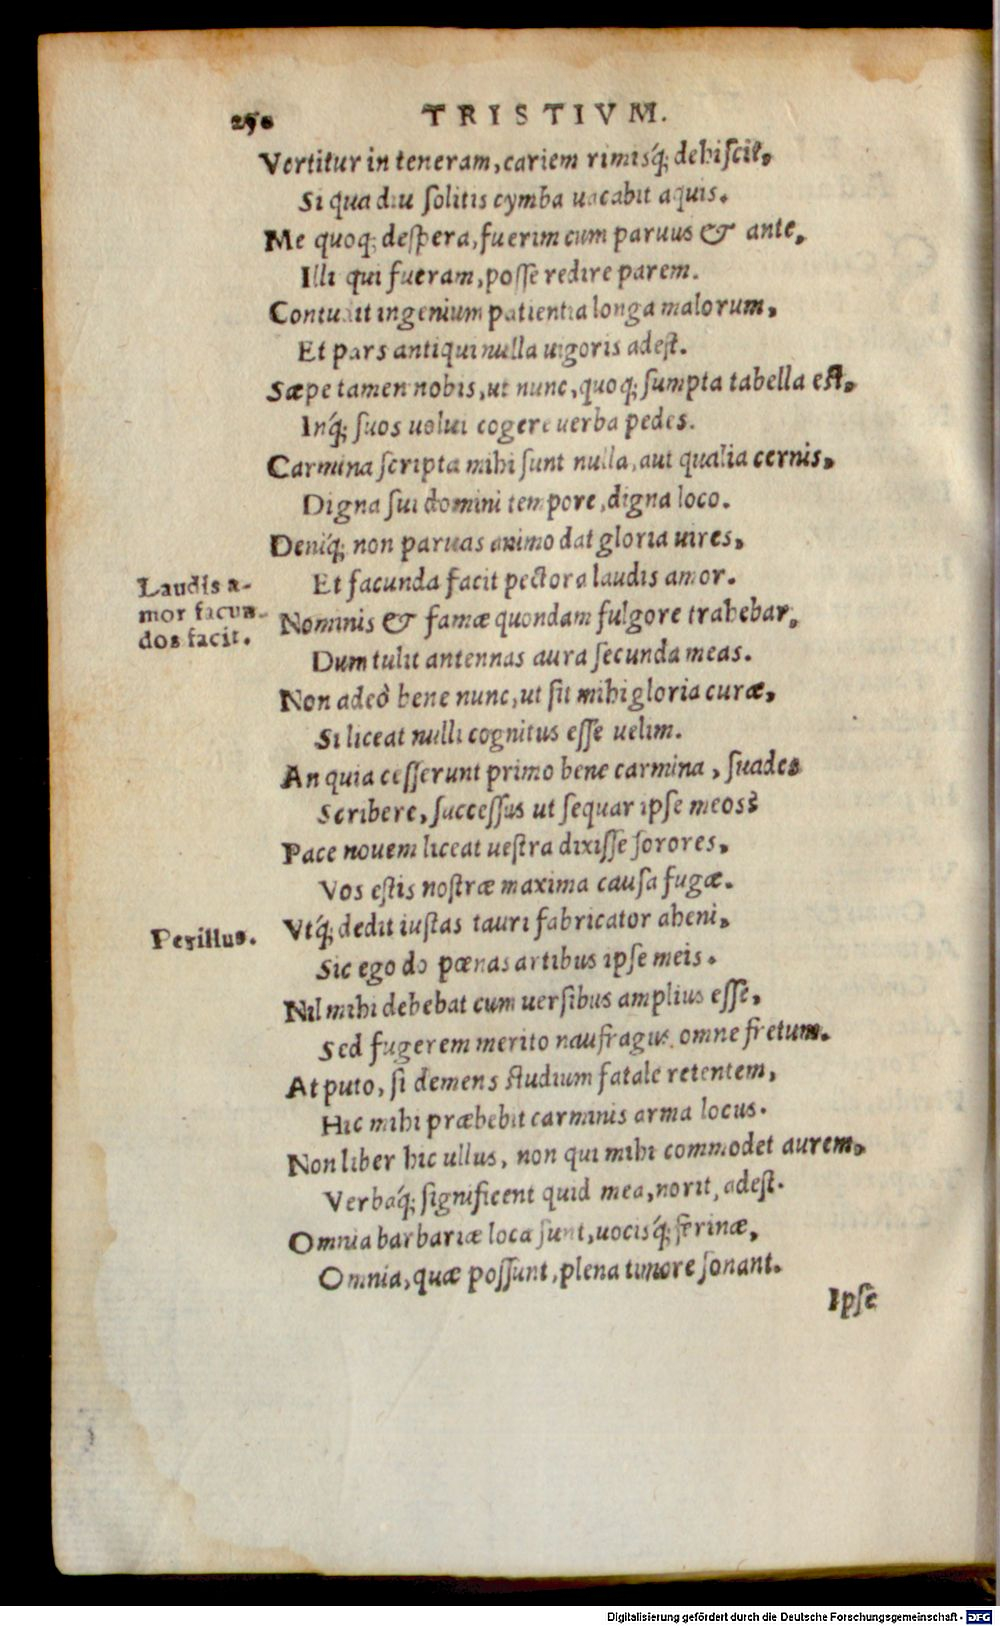 250 TRISTIVM.
Vertitur in teneram, cariem rimisq́; dehiscit,
Si qua diu solitis cymba uacabit aquis.
Me quoq; despera, fuerim cum paruus & ante,
Illi qui fueram, posse redire parem.
Contudit ingenium patientia longa malorum,
Et pars antiqui nulla uigoris adest.
Sæpe tamen nobis, ut nunc, quoq; sumpta tabella est,
Inq́; suos uolui cogere uerba pedes.
Carmina scripta mihi sunt nulla, aut qualia cernis,
Digna sui domini tempore, digna loco.
Deniq́; non paruas animo dat gloria uires,
Laudis a-
mor facun-
dos facit.
Et facunda facit pectora laudis amor.
Nominis & famæ quondam fulgore trahebar,
Dum tulit antennas aura secunda meas.
Non adeò bene nunc, ut sit mihi gloria curæ,
Si liceat nulli cognitus esse uelim.
An quia cesserunt primo bene carmina, suades
Scribere, successus ut sequar ipse meos?
Pace nouem liceat uestra dixisse sorores,
Vos estis nostræ maxima causa fugæ.
Perillus.
Vtq́; dedit iustas tauri fabricator aheni,
Sic ego do pœnas artibus ipse meis.
Nil mihi debebat cum uersibus amplius esse,
Sed fugerem merito naufragus omne fretum.
At puto, si demens studium fatale retentem,
Hic mihi præbebit carminis arma locus.
Non liber hic ullus, non qui mihi commodet aurem,
Verbaq́; significent quid mea, norit, adest.
Omnia barbariæ loca sunt, uocisq́; ferinæ,
Omnia, quæ possunt, plena timore sonant.
Ipse
Digitalisierung gefördert durch die Deutsche Forschungsgemeinschaft - DFG